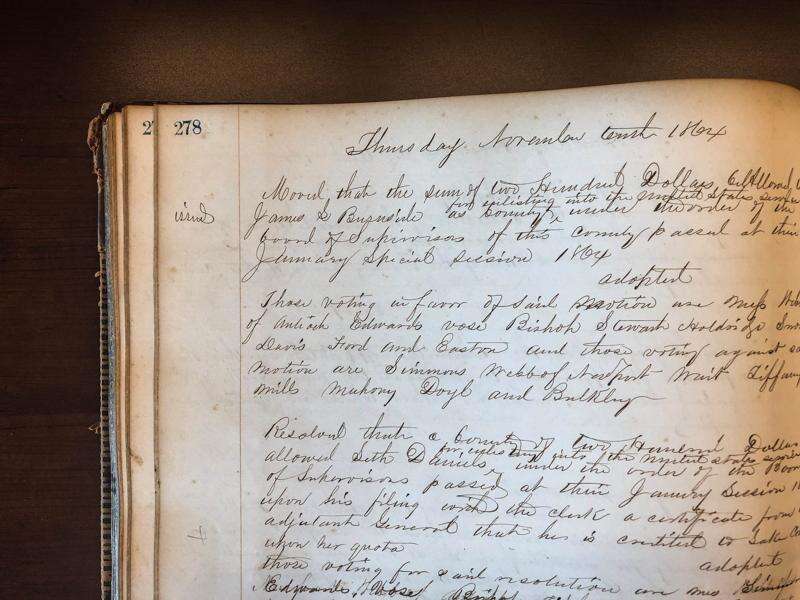 27 278
Thursday November tenth 1864
Moved that the sum of two Hundred Dollars be Allowed
for enlisting into the United States service
issued
James S Burnside as bounty under the order of the
board of Supervisors of this County passed at their
January Special session 1864
adopted
Those voting in favor of said motion are Mess Webb
of Antioch Edwards vose Bishop Stewart Holdridge
Davis Ford and Easton and those voting against
motion are Simmons Webb of Newport Wait Tiffany
mills Mahony Doyl and Bulkley
Resolved that a bounty of two Hundred Dollars
for enlisting into the United states service
allowed Seth Daniels under the order of the Board
of Supervisors passed at their January Session
upon his filing with the clerk a certificate from
adjutant General that he is entitled to
upon her quota
adopted
those voting for said resolution are mes
Edwards Vose Bishop